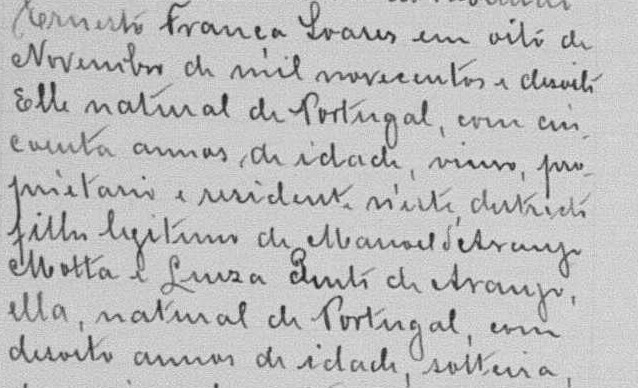 Ernesto Franca Soares em oito de
Novembro de mil novecentos e desoito
Elle natural de Portugal, com cin-
coenta annos de idade, viuvo, pro-
prietario e residente n'este, districto
filho legitimo de Manoel d'Araujo
Motta e Luiza de Araujo,
ella, natural de Portugal, com
desoito annos de idade, solteira,